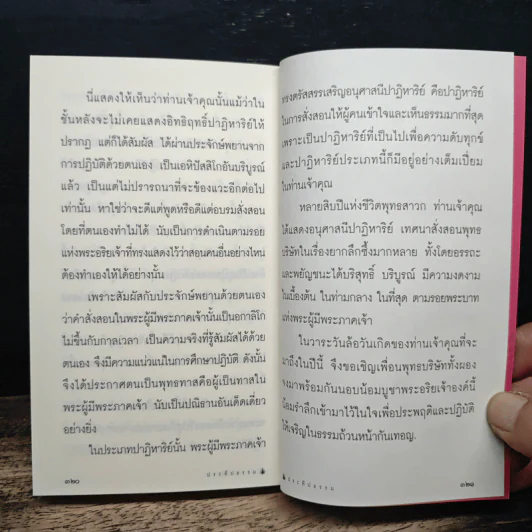 นี่แสดงให้เห็นว่าท่านเจ้าคุณนั้นแม้ว่าใน
ชั้นหลังจะไม่เคยแสดงอิทธิฤทธิ์ปาฏิหาริย์ให้
ปรากฏ แต่ก็ได้สัมผัส ได้ผ่านประจักษ์พยานจาก
การปฏิบัติด้วยตนเอง เป็นเอหิปัสสิโกอันบริบูรณ์
แล้ว เป็นแต่ไม่ปรารถนาที่จะข้องแวะอีกต่อไป
เท่านั้น หาใช่ว่าจะดีแต่พูดหรือดีแต่อบรมสั่งสอน
โดยที่ตนเองทำไม่ได้ นับเป็นการดำเนินตามรอย
แห่งพระอริยเจ้าที่ทรงแสดงไว้ว่าสอนคนอื่นอย่างไหน
ต้องทำเองให้ได้อย่างนั้น
เพราะสัมผัสกับประจักษ์พยานด้วยตนเอง
ว่าคำสั่งสอนในพระผู้มีพระภาคเจ้านั้นเป็นอกาลิโก
ไม่ขึ้นกับกาลเวลา เป็นความจริงที่รู้สัมผัสได้ด้วย
ตนเอง จึงมีความแน่วแน่ในการศึกษาปฏิบัติ ดังนั้น
จึงได้ประกาศตนเป็นพุทธทาสคือผู้เป็นทาสใน
พระผู้มีพระภาคเจ้า นับเป็นปณิธานอันเด็ดเดี่ยว
อย่างยิ่ง
ในประเภทปาฏิหาริย์นั้น พระผู้มีพระภาคเจ้า
๓๒๐
ประทีปธรรม
ทรงตรัสสรรเสริญอนุศาสนีปาฏิหาริย์ คือปาฏิหาริย์
ในการสั่งสอนให้ผู้คนเข้าใจและเห็นธรรมมากที่สุด
เพราะเป็นปาฏิหาริย์ที่เป็นไปเพื่อความดับทุกข์
และปาฏิหาริย์ประเภทนี้ก็มีอยู่อย่างเต็มเปี่ยม
ในท่านเจ้าคุณ
หลายสิบปีแห่งชีวิตพุทธสาวก ท่านเจ้าคุณ
ได้แสดงอนุศาสนีปาฏิหาริย์ เทศนาสั่งสอนพุทธ
บริษัทในเรื่องยากลึกซึ้งมากหลาย ทั้งโดยอรรถะ
และพยัญชนะได้บริสุทธิ์ บริบูรณ์ มีความงดงาม
ในเบื้องต้น ในท่ามกลาง ในที่สุด ตามรอยพระบาท
แห่งพระผู้มีพระภาคเจ้า
ในวาระวันล้อวันเกิดของท่านเจ้าคุณที่จะ
มาถึงในปีนี้ จึงขอเชิญเพื่อนพุทธบริษัททั้งผอง
จงมาพร้อมกันนอบน้อมบูชาพระอริยเจ้าองค์นี้
น้อมรำลึกเข้ามาไว้ในใจเพื่อประพฤติและปฏิบัติ
ให้เจริญในธรรมถ้วนหน้ากันเทอญ.
ประทีปธรรม
๓๒๑